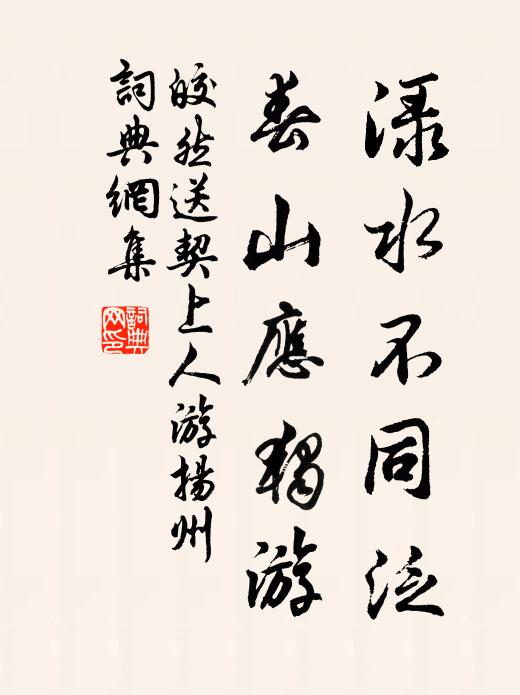 渌水不同泛
春山應獨游
皎然送契上人游揚州
詞典網集
詞典网印